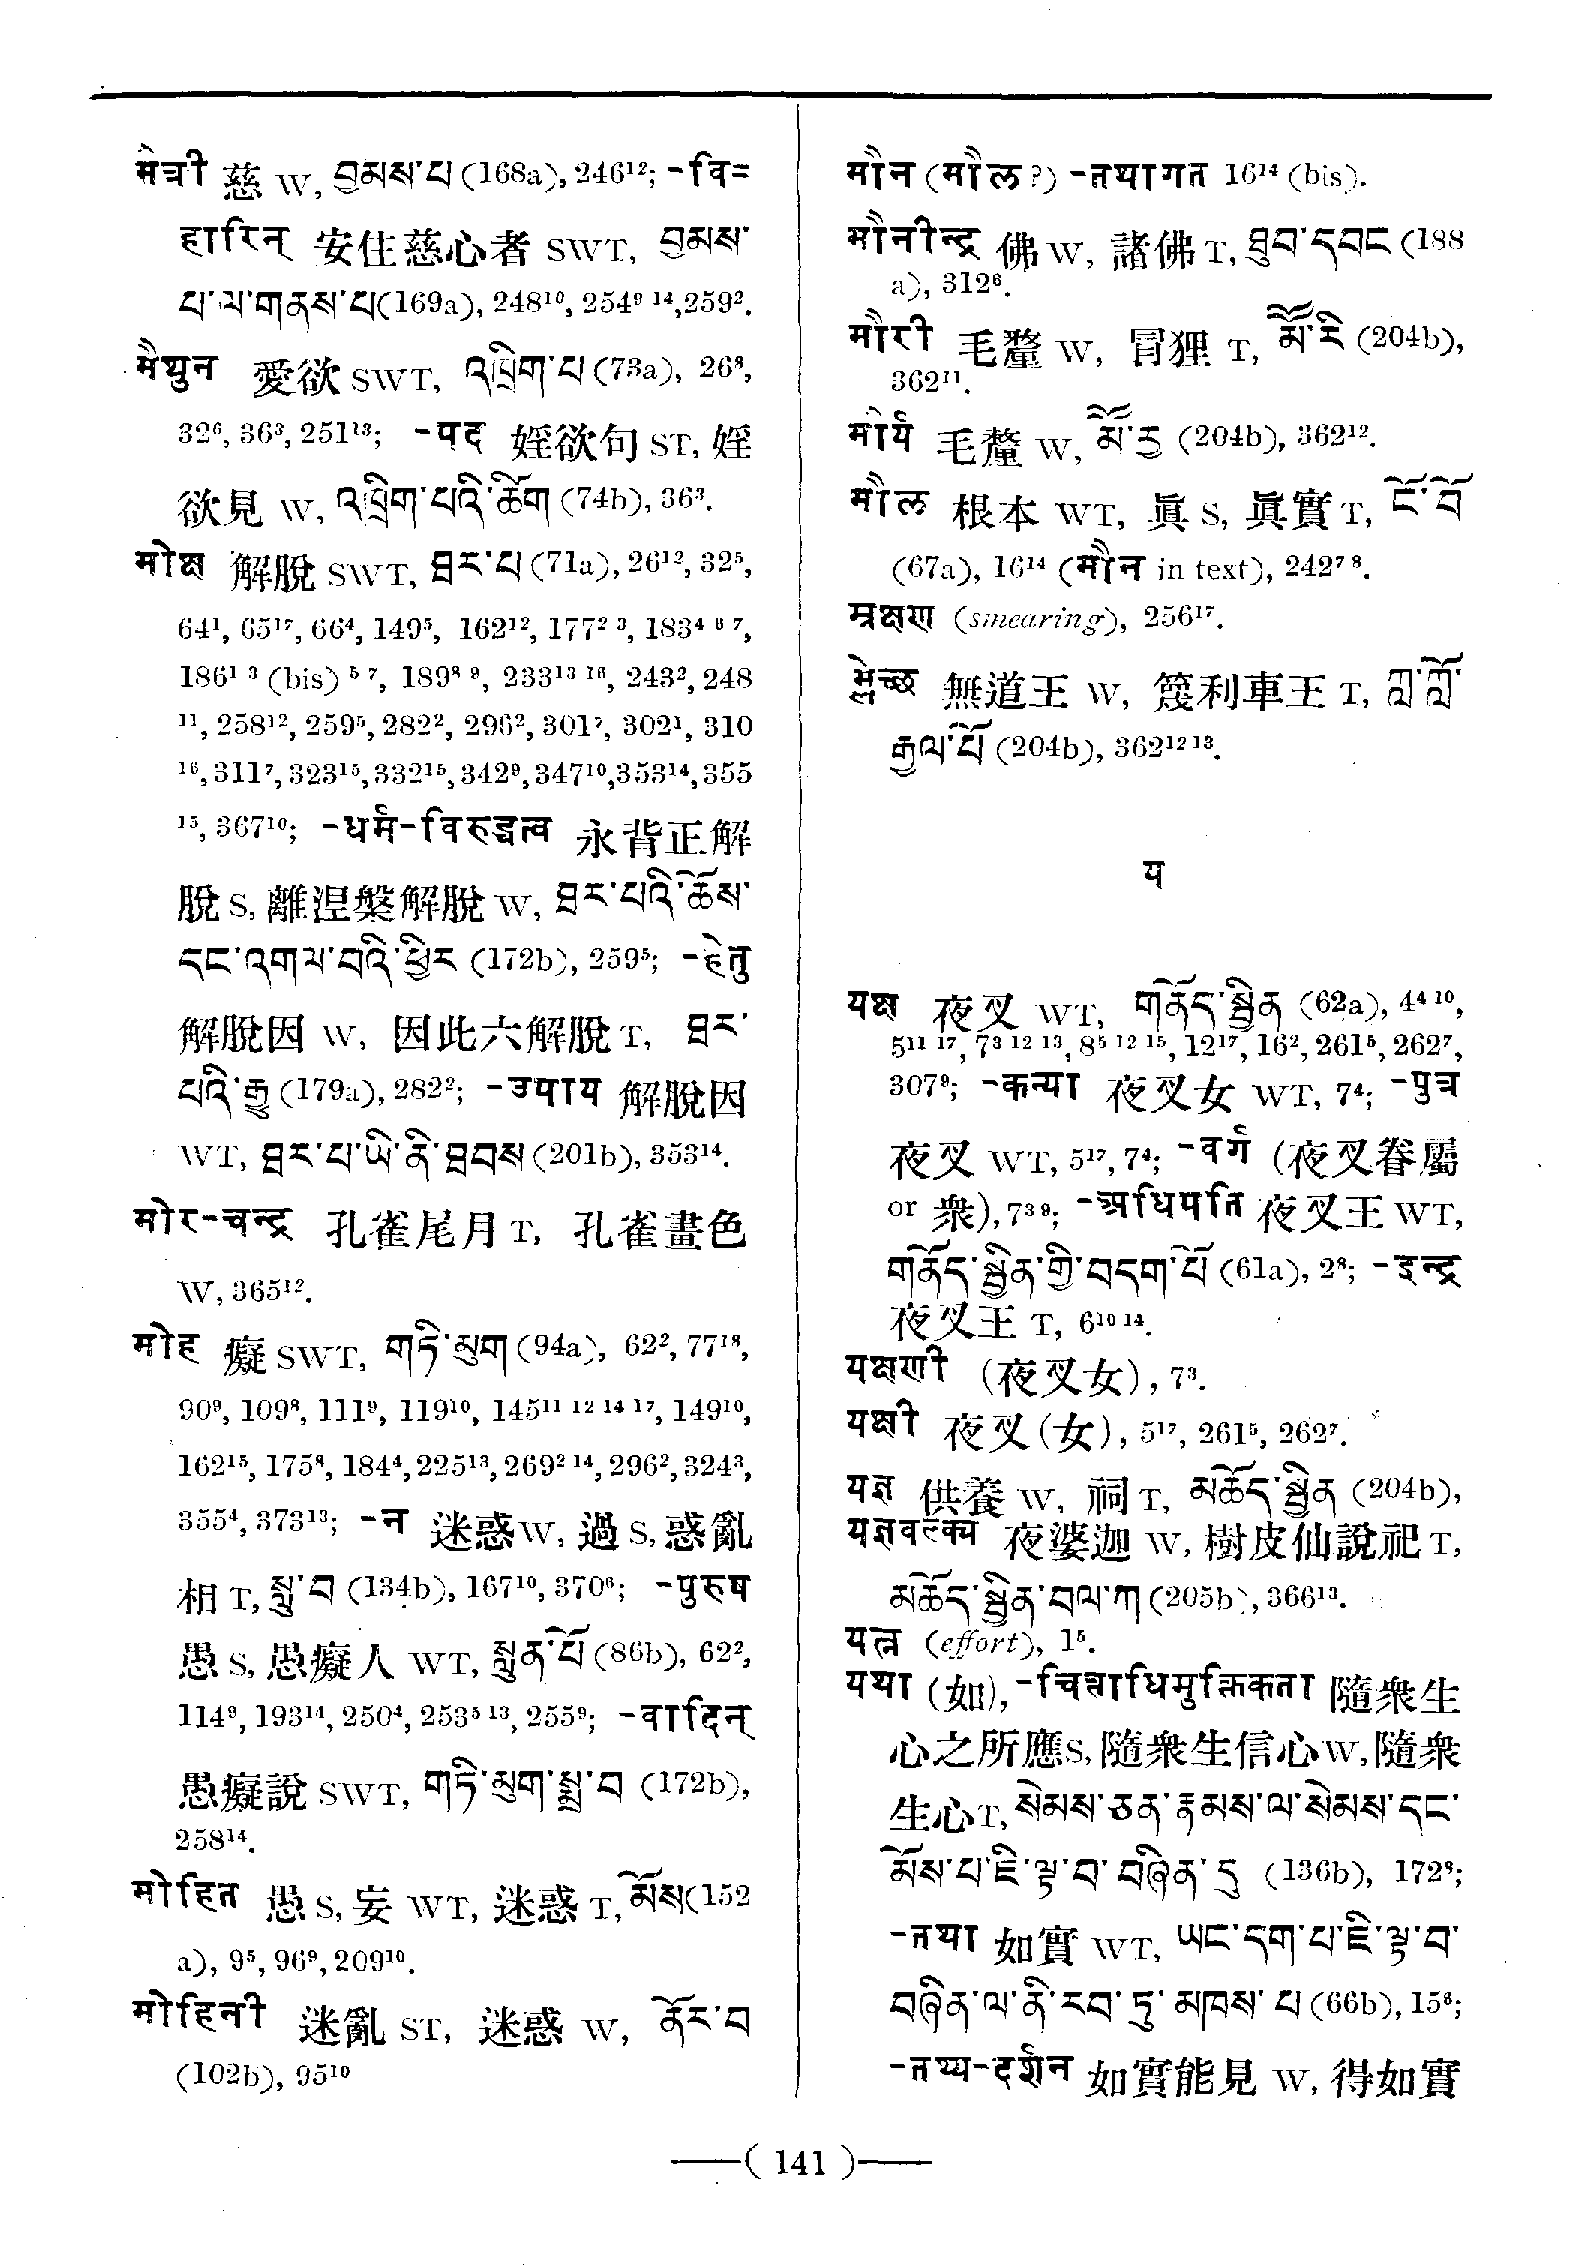 मैत्री 慈 W, བྱམས་པ (168a), 246¹²; -वि=
हारिन् 安住慈心者 SWT, བྱམས་
པ་ལ་གནས་པ(169a), 248¹⁰, 254⁹ ¹⁴,259².
मैथुन 愛欲 SWT, འཁྲིག་པ (73a), 26⁸,
32⁶, 36³, 251¹³; -पद 婬欲句 ST, 婬
欲見 W, འཁྲིག་པའི་ཚིག (74b), 36³.
मोक्ष 解脫 SWT, ཐར་པ (71a), 26¹², 32⁵,
64¹, 65¹⁷, 66⁴, 149⁵, 162¹², 177² ³, 183⁴ ⁶ ⁷,
186¹ ³ (bis) ⁵ ⁷, 189⁸ ⁹, 233¹³ ¹⁶, 243², 248
¹¹, 258¹², 259⁵, 282², 296², 301⁷, 302¹, 310
¹⁶, 311⁷, 323¹⁵, 332¹⁵, 342⁹, 347¹⁰, 353¹⁴, 355
¹⁵, 367¹⁰; -धर्म-विरुद्धत्व 永背正解
脫 S, 離涅槃解脫 W, ཐར་པའི་ཆོས་
དང་འགལ་བའི་ཕྱིར (172b), 259⁵; -हेतु
解脫因 W, 因此六解脫 T, ཐར་
པའི་རྒྱུ (179a), 282²; -उपाय 解脫因
WT, ཐར་པ་ཡི་ནི་ཐབས (201b), 353¹⁴.
मोर-चन्द्र 孔雀尾月 T, 孔雀畫色
W, 365¹².
मोह 癡 SWT, གཏི་མུག (94a), 62², 77¹⁸,
90⁹, 109⁸, 111⁹, 119¹⁰, 145¹¹ ¹² ¹⁴ ¹⁷, 149¹⁰,
162¹⁵, 175⁸, 184⁴, 225¹³, 269² ¹⁴, 296², 324³,
355⁴, 373¹³; -न 迷惑 W, 過 S, 惑亂
相 T, སླུ་བ (134b), 167¹⁰, 370⁶; -पुरुष
愚 S, 愚癡人 WT, སླུན་པོ (86b), 62²,
114⁹, 193¹⁴, 250⁴, 253⁵ ¹³, 255⁹; -वादिन्
愚癡說 SWT, གཏི་མུག་སྨྲ་བ (172b),
258¹⁴.
मोहित 愚 S, 妄 WT, 迷惑 T, མོས(152
a), 9⁵, 96⁹, 209¹⁰.
मोहिनी 迷亂 ST, 迷惑 W, ནོར་བ
(102b), 95¹⁰
मौन (मौल ?) -तथागत 16¹⁴ (bis).
मौनीन्द्र 佛 W, 諸佛 T, ཐུབ་དབང (188
a), 312⁶.
मौरी 毛釐 W, 冐狸 T, མཽ་རི (204b),
362¹¹.
मौर्य 毛釐 W, མཽ་རྱ (204b), 362¹².
मौल 根本 WT, 眞 S, 眞實 T, ངོ་བོ
(67a), 16¹⁴ (मौन in text), 242⁷ ⁸.
म्रक्षण (smearing), 256¹⁷.
म्लेच्छ 無道王 W, 篾利車王 T, ཀླ་ཀློ་
རྒྱལ་པོ (204b), 362¹² ¹³.
य
यक्ष 夜叉 WT, གནོད་སྦྱིན (62a), 4⁴ ¹⁰,
5¹¹ ¹⁷, 7³ ¹² ¹³, 8⁵ ¹² ¹⁵, 12¹⁷, 16², 261⁵, 262⁷,
307⁹; -कन्या 夜叉女 WT, 7⁴; -पुत्र
夜叉 WT, 5¹⁷, 7⁴; -वर्ग (夜叉眷屬
or 衆), 7³ ⁹; -अधिपति 夜叉王 WT,
གནོད་སྦྱིན་གྱི་བདག་པོ (61a), 2⁸; -इन्द्र
夜叉王 T, 6¹⁰ ¹⁴.
यक्षणी (夜叉女), 7³.
यक्षी 夜叉(女), 5¹⁷, 261⁵, 262⁷.
यज्ञ 供養 W, 祠 T, མཆོད་སྦྱིན (204b),
यज्ञवल्क्य 夜婆迦 W, 樹皮仙說祀 T,
མཆོད་སྦྱིན་བལ་ཀ (205b), 366¹³.
यत्न (effort), 1⁵.
यथा (如), -चित्ताधिमुक्तिकता 隨衆生
心之所應S, 隨衆生信心W, 隨衆
生心T, སེམས་ཅན་རྣམས་ལ་སེམས་དང་
མོས་པ་ཇི་ལྟ་བ་བཞིན་དུ (136b), 172⁸;
-तथा 如實 WT, ཡང་དག་པ་ཇི་ལྟ་བ་
བཞིན་ལ་ནི་རབ་ཏུ་མཁས་པ (66b), 15⁸;
-तथ्य-दर्शन 如實能見 W, 得如實
—( 141 )—